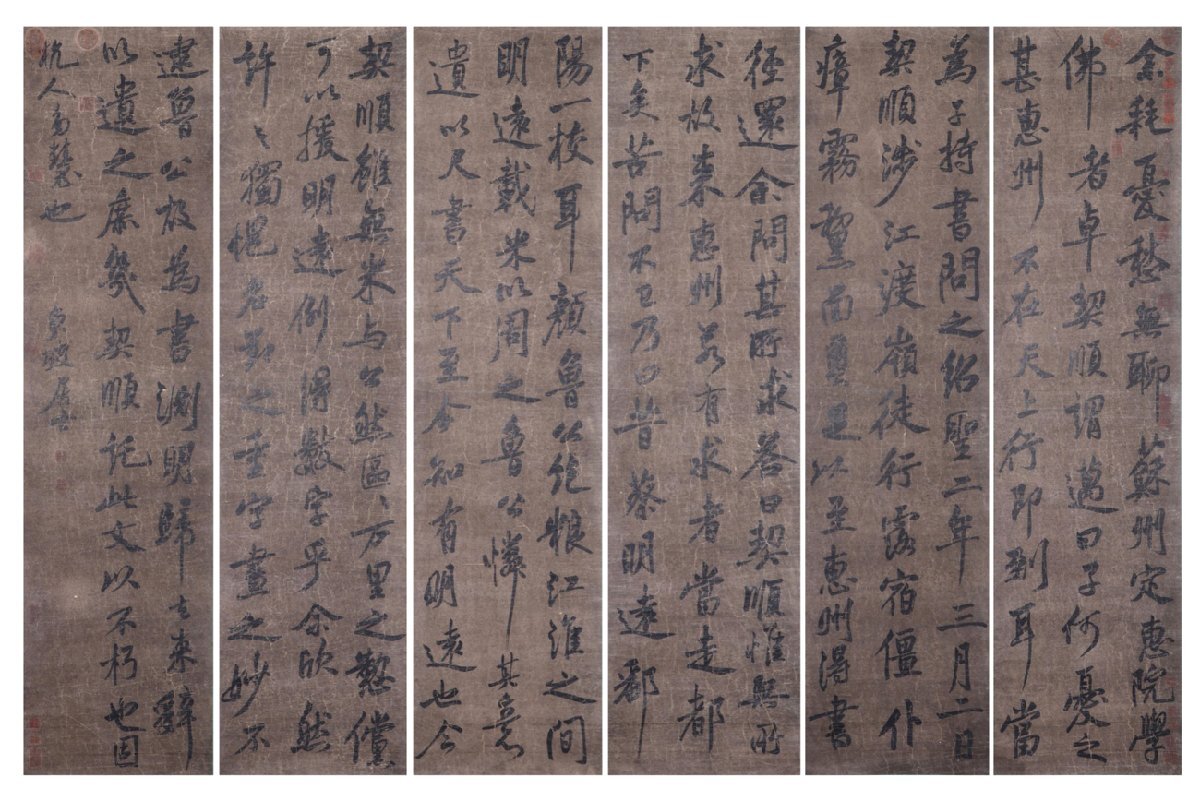 余耗憂愁無聊蘇州定惠院學
佛者卓契順謂邁曰子何憂之
甚惠州不在天上行即到耳當
為子持書問之紹聖二年三月二日
契順涉江渡嶺徒行露宿僵仆
瘴霧黧面繭足以至惠州得書
徑還余問其所求荅曰契順惟無所
求故來惠州若有求者當走都
下矣苦問不已乃曰昔蔡明遠鄱
陽一校耳顏魯公絶粮江淮之間
明遠載米以周之魯公憐其意
遺以尺書天下至今知有明遠也今
契順雖無米与公然區〻万里之懃儻
可以援明遠例得數字乎余欣然
許〻獨愧名節之重字畫之妙不
逮魯公故為書淵明歸去來辭
以遺之庶幾契順託此文以不朽也因
杭人
東坡居士